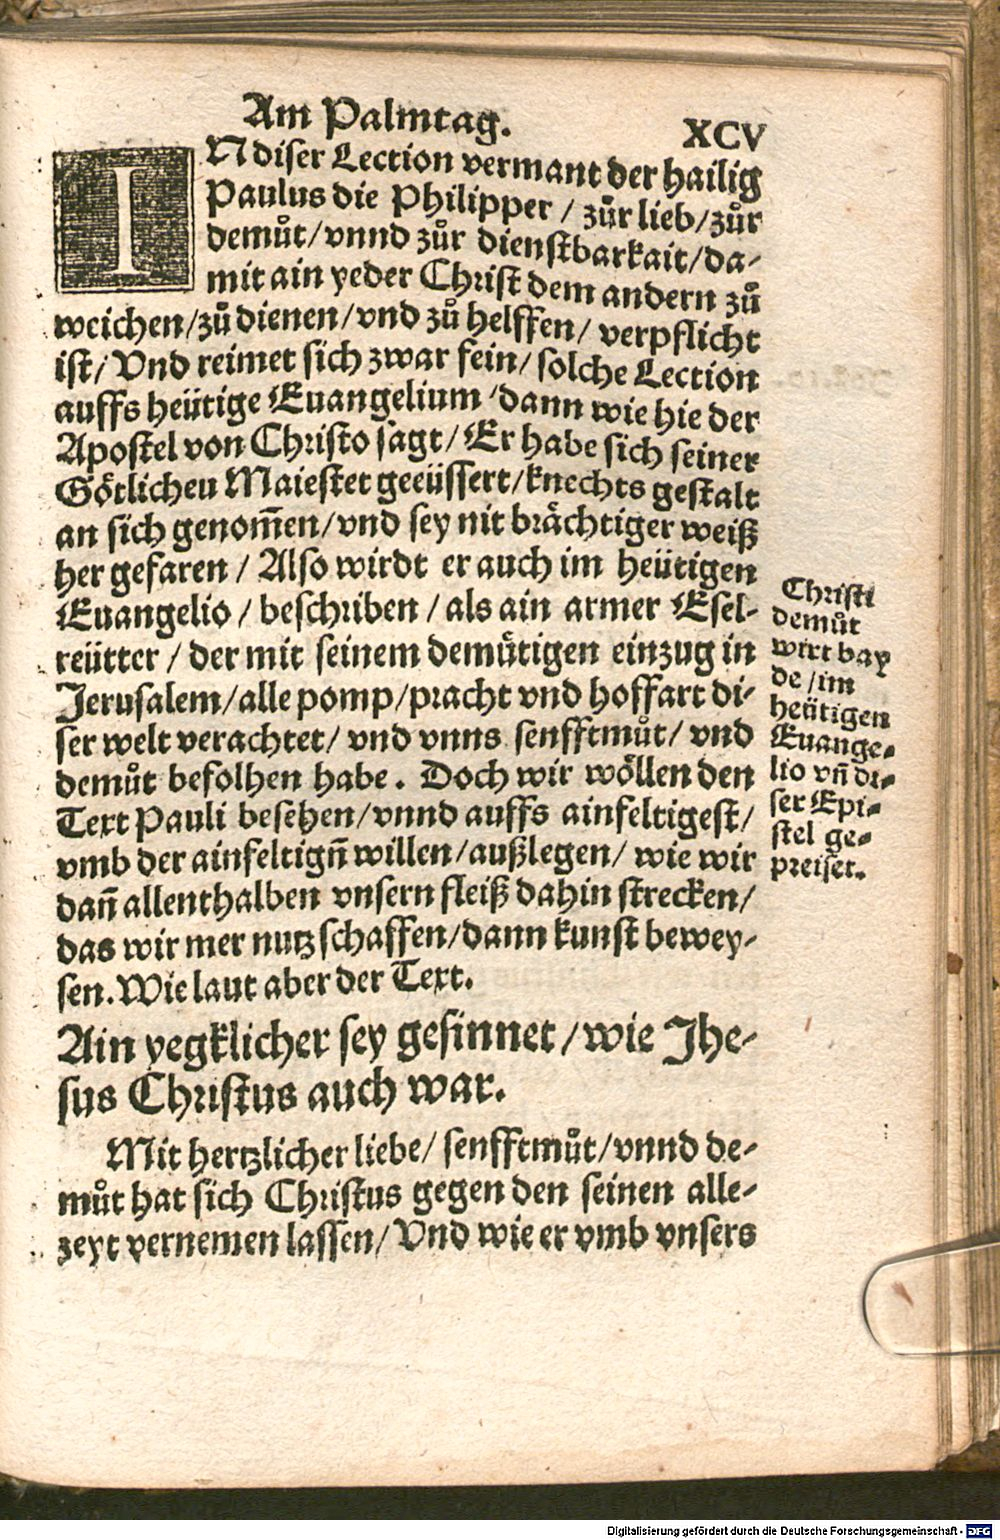 Am Palmtag.
XCV
IN diser Lection vermant der hailig
Paulus die Philipper / zůr lieb/zůr
demůt/vnnd zůr dienstbarkait/da-
mit ain yeder Christ dem andern zů
weichen/zů dienen/vnd zů helffen/ verpflicht
ist/ Vnd reimet sich zwar fein/ solche Lection
auffs heütige Euangelium /dann wie hie der
Apostel von Christo sagt/ Er habe sich seiner
Göttlichen Maiestet geeüssert/knechts gestalt
an sich genom̃en/vnd sey nit brächtiger weiß
her gefaren / Also wirdt er auch im heütigen
Euangelio / beschriben / als ain armer Esel-
reütter / der mit seinem demuͤtigen einzug in
Jerusalem/alle pomp/pracht vnd hoffart di-
ser welt verachtet/ vnd vnns senfftmůt/ vnd
demůt befolhen habe. Doch wir wöllen den
Text Pauli besehen/vnnd auffs ainfeltigest/
vmb der ainfeltigñ willen/außlegen/ wie wir
dañ allenthalben vnsern fleiß dahin strecken/
das wir mer nutz schaffen/dann kunst bewey-
sen. Wie laut aber der Text.
Ain yegklicher sey gesinnet /wie Jhe-
sus Christus auch war.
Mit hertzlicher liebe/ senfftmůt/vnnd de-
můt hat sich Christus gegen den seinen alle-
zeyt vernemen lassen/ Vnd wie er vmb vnsers
Christi
demůt
wirt bay
de /im
heütigen
Euange-
lio vñ di-
ser Epi-
stel ge-
preiset.
Digitalisierung gefördert durch die Deutsche Forschungsgemeinschaft - DFG